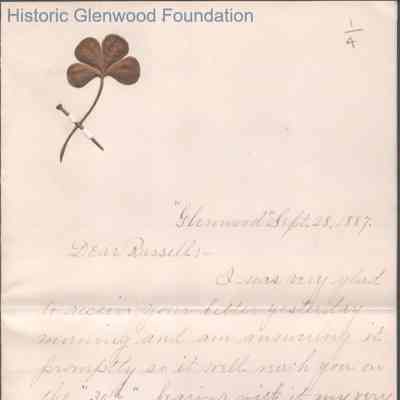 Historic Glenwood Foundation
1/4
"Glenwood" Sept. 28, 1887.
Dear Russell:-
I was very glad
to receive your letter yesterday
morning and am answering it
promptly so it will reach you on
the "30th" bearing with it my very